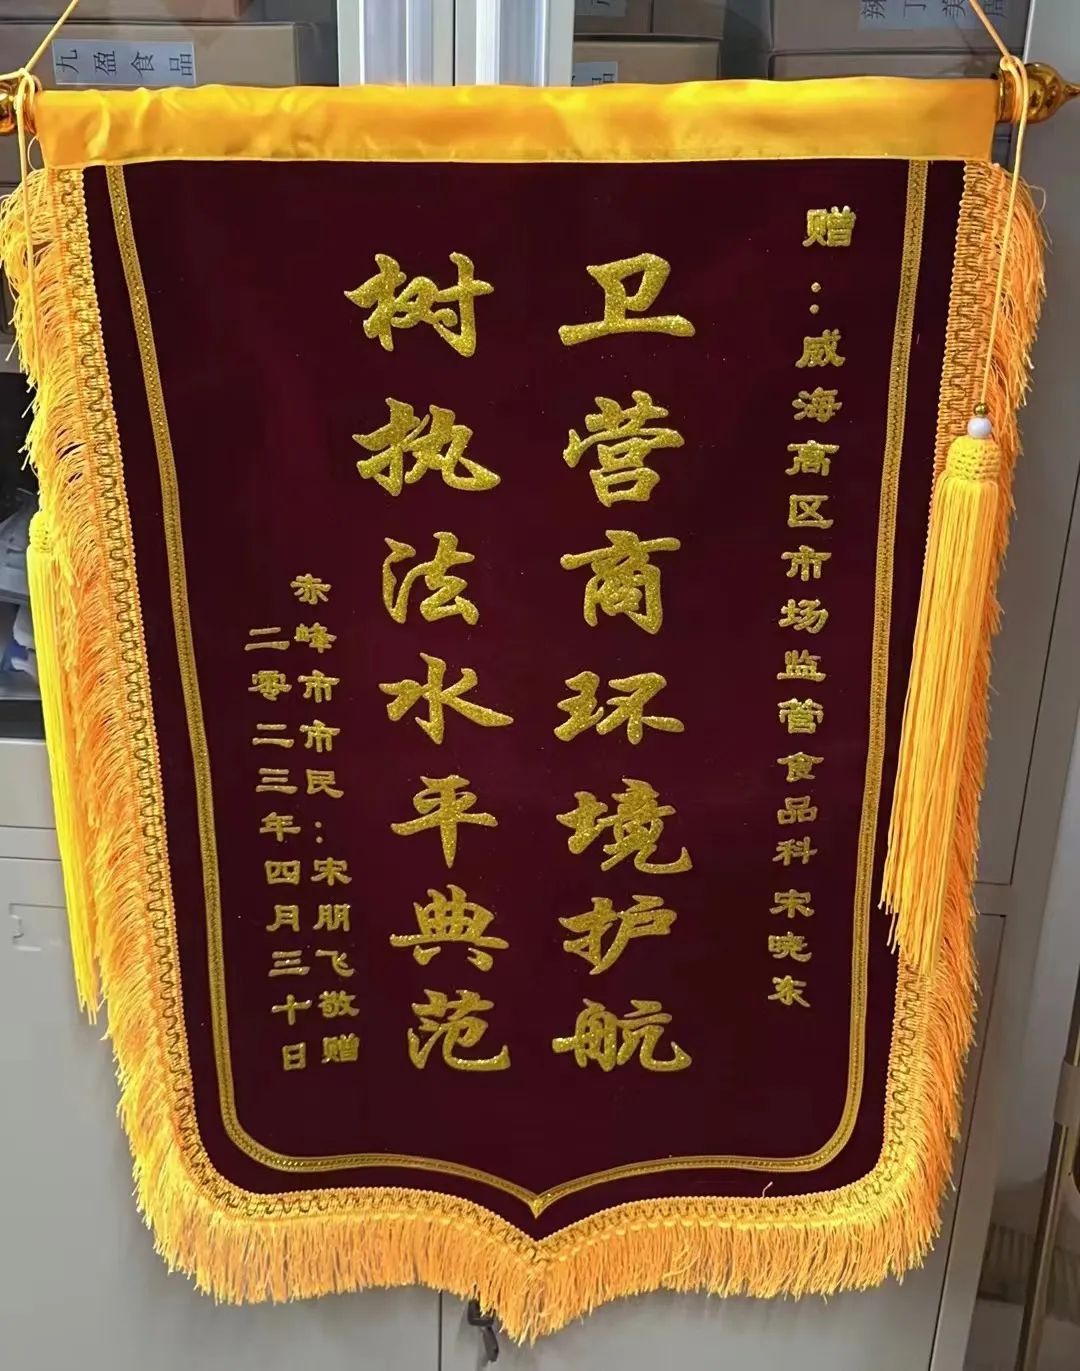 赠：威海高区市场监管食品科 宋晓东
卫营商环境护航
树执法水平典范
赤峰市市民：宋朋飞敬赠
二零二三年四月三十日
九盈食品